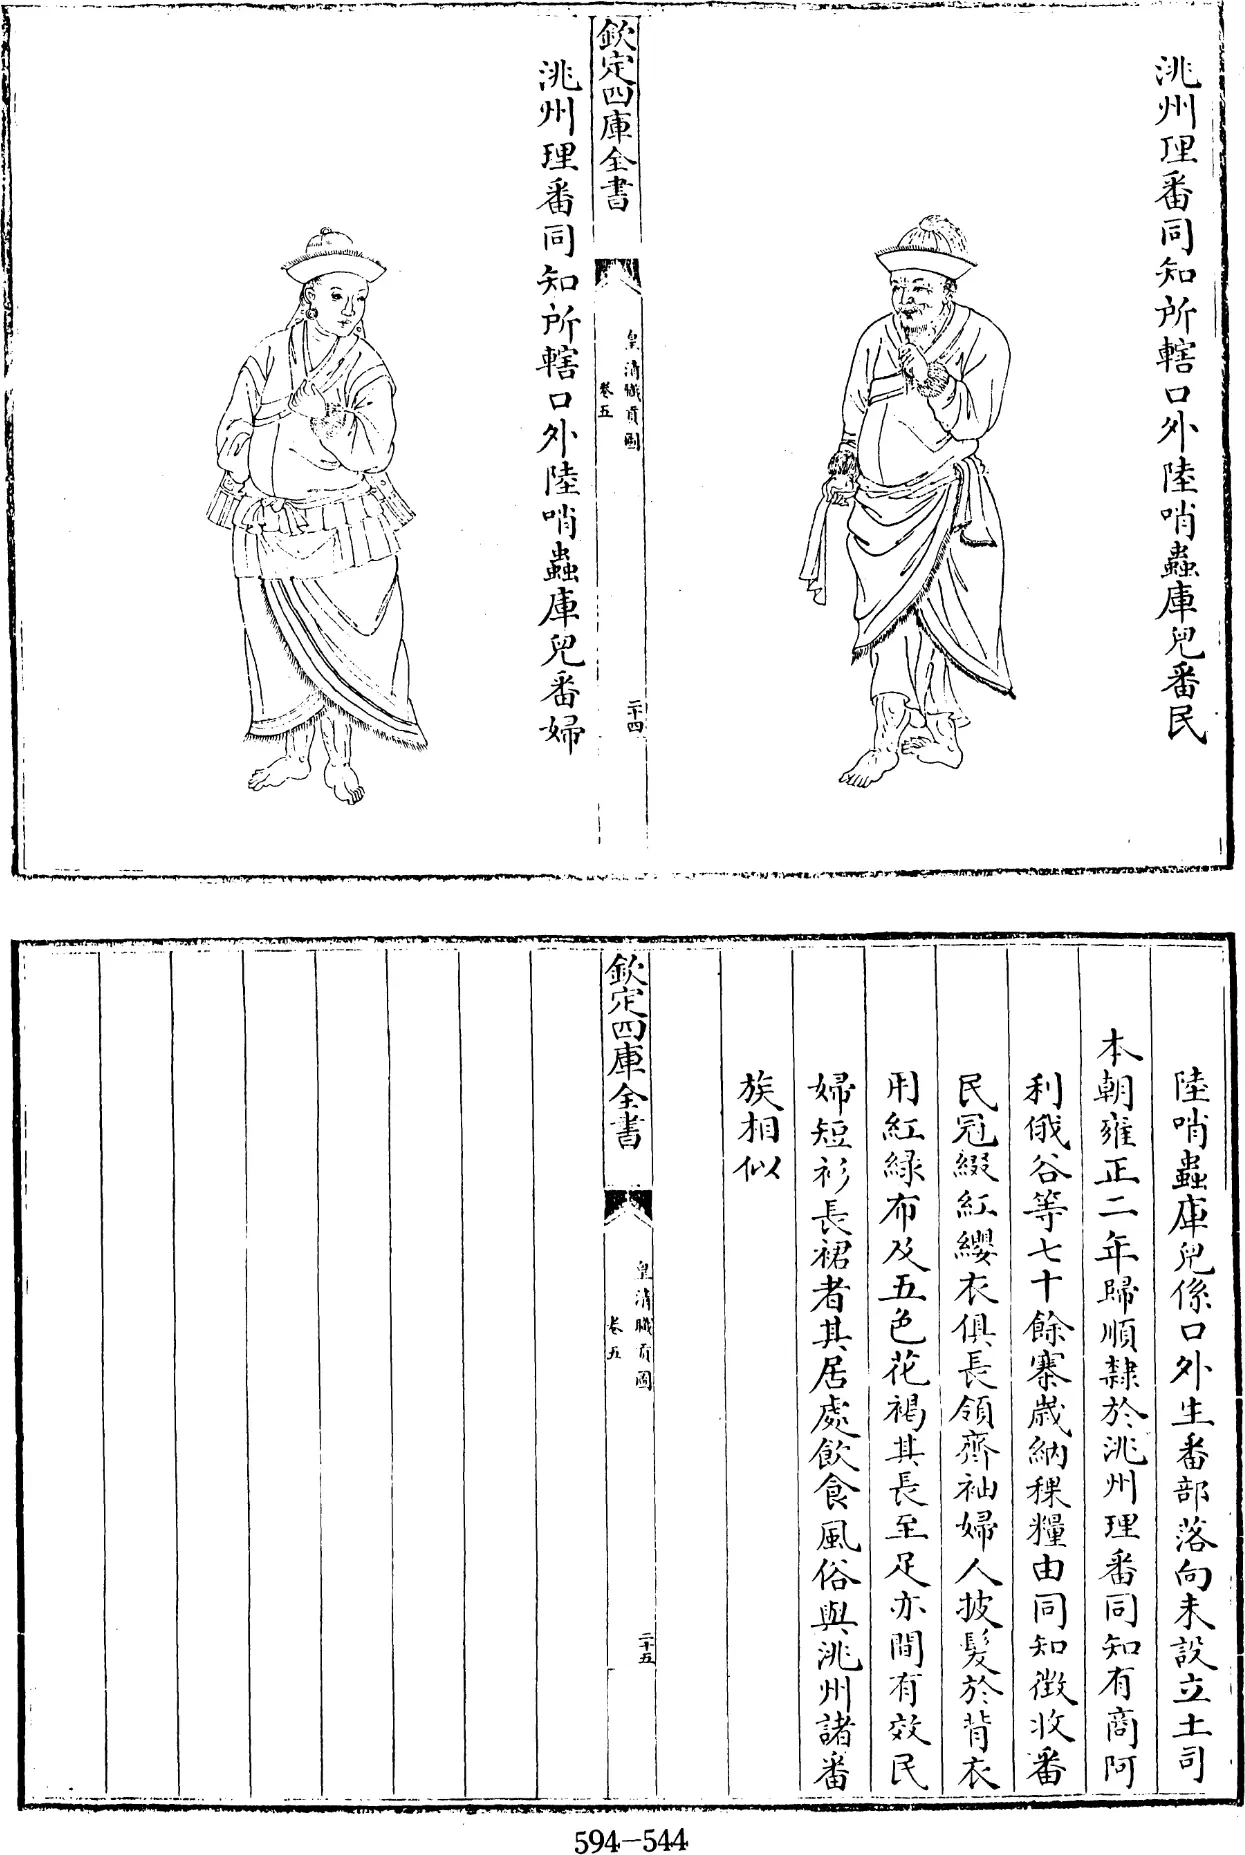 洮州理番同知所轄口外陸哨蟲庫兒番民
欽定四庫全書
皇清職貢圖
卷五
二十四
洮州理番同知所轄口外陸哨蟲庫兒番婦
陸哨蟲庫兒係口外生番部落向未設立土司
本朝雍正二年歸順隸於洮州理番同知有商阿
利俄谷等七十餘寨歲納稞糧由同知徵收番
民冠綴紅纓衣俱長領齊袖婦人披髮於背衣
用紅綠布及五色花褐其長至足亦間有效民
婦短衫長裙者其居處飲食風俗與洮州諸番
族相似
欽定四庫全書
皇清職貢圖
卷五
二十五
594-544